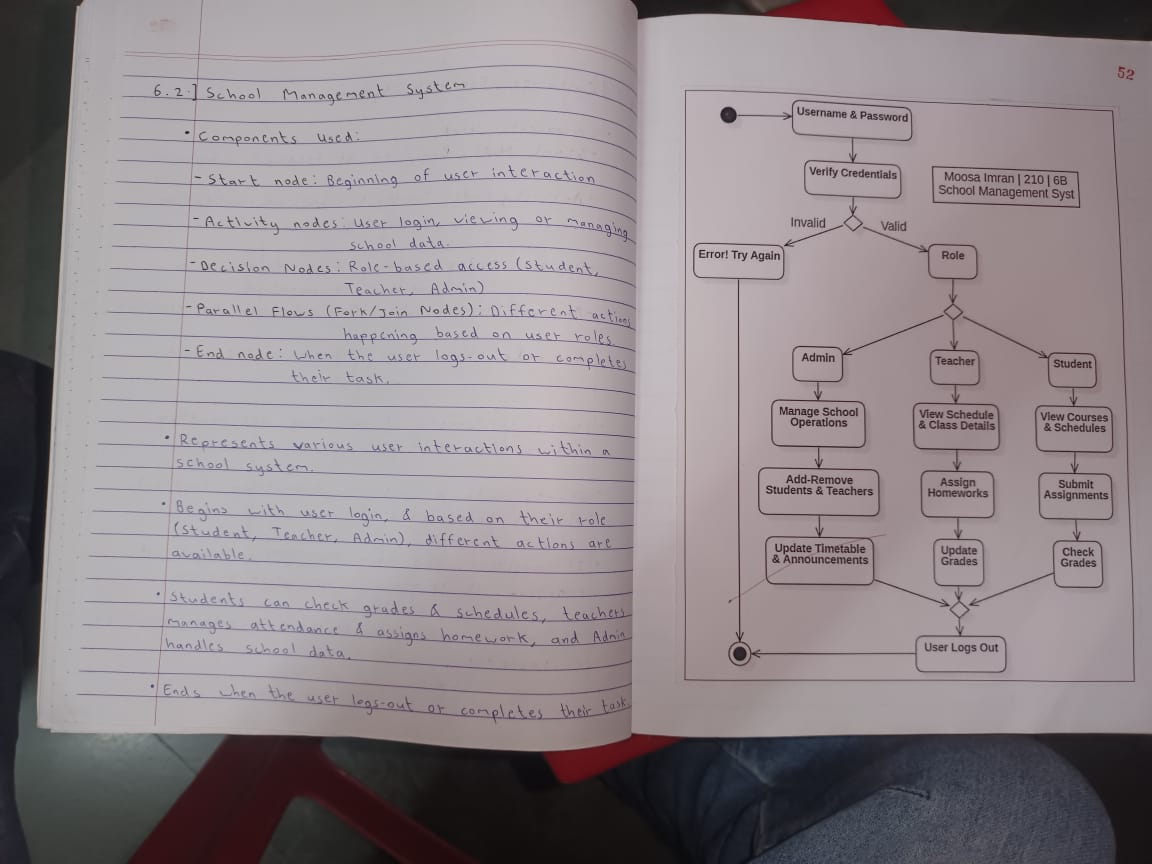 6.2.] School Management System
• Components used:
- Start node: Beginning of user interaction
- Activity nodes: User login, viewing or managing
school data.
- Decision Nodes: Role-based access (Student,
Teacher, Admin)
- Parallel Flows (Fork/Join Nodes): Different actions
happening based on user roles.
- End node: When the user logs-out or completes
their task.
• Represents various user interactions within a
school system.
• Begins with user login, & based on their role
(Student, Teacher, Admin), different actions are
available.
• Students can check grades & schedules, teachers
manages attendance & assigns homework, and Admin
handles school data.
• Ends when the user logs-out or completes their task.
52
Username & Password
Verify Credentials
Moosa Imran | 210 | 6B
School Management Syst
Invalid
Valid
Error! Try Again
Role
Admin
Teacher
Student
Manage School
Operations
View Schedule
& Class Details
View Courses
& Schedules
Add-Remove
Students & Teachers
Assign
Homeworks
Submit
Assignments
Update Timetable
& Announcements
Update
Grades
Check
Grades
User Logs Out